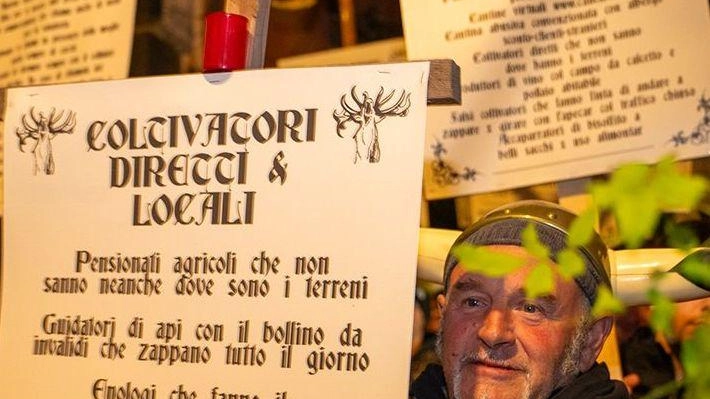 COLTIVATORI
DIRETTI &
LOCALI
Pensionati agricoli che non
sanno neanche dove sono i terreni
Guidatori di api con il bollino da
invalidi che zappano tutto il giorno
Enologi che fanno il
Cantine virtuali
Cantina abusiva convenzionata con albergo
sconto-clienti-stranieri
Coltivatori diretti che non sanno
dove hanno i terreni
Produttori di vino col campo da calcetto e
pollaio abitabile
Falsi coltivatori che fanno finta di andare a
zappare e girare con l'apecar col traffico chiuso
Accaparratori di bisolfito a
belli sacchi x uso alimentar